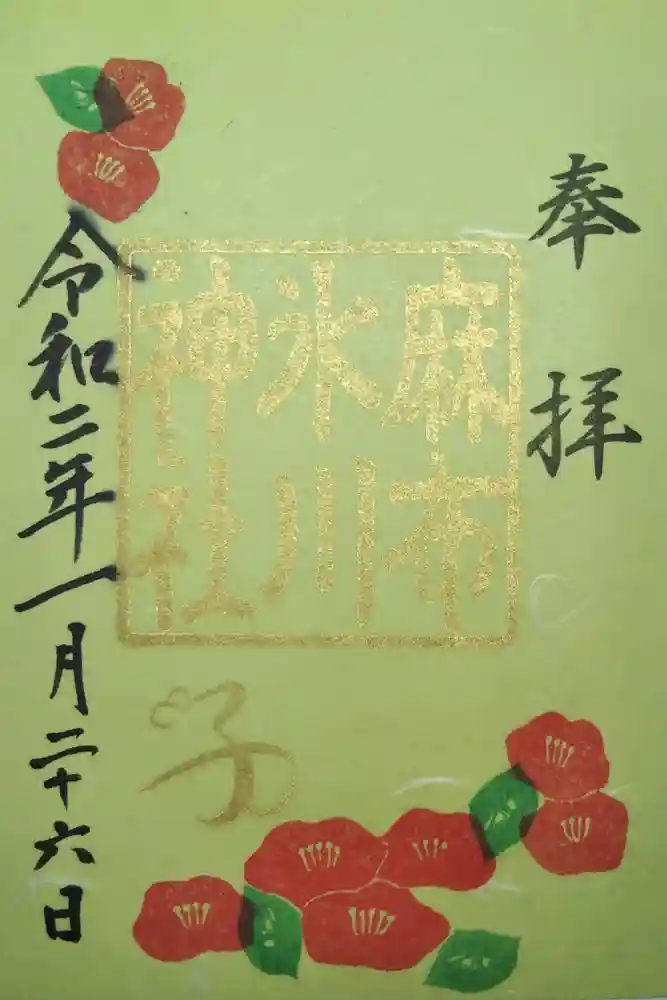 奉拝
麻布
氷川
神社
子
令和二年一月二十六日